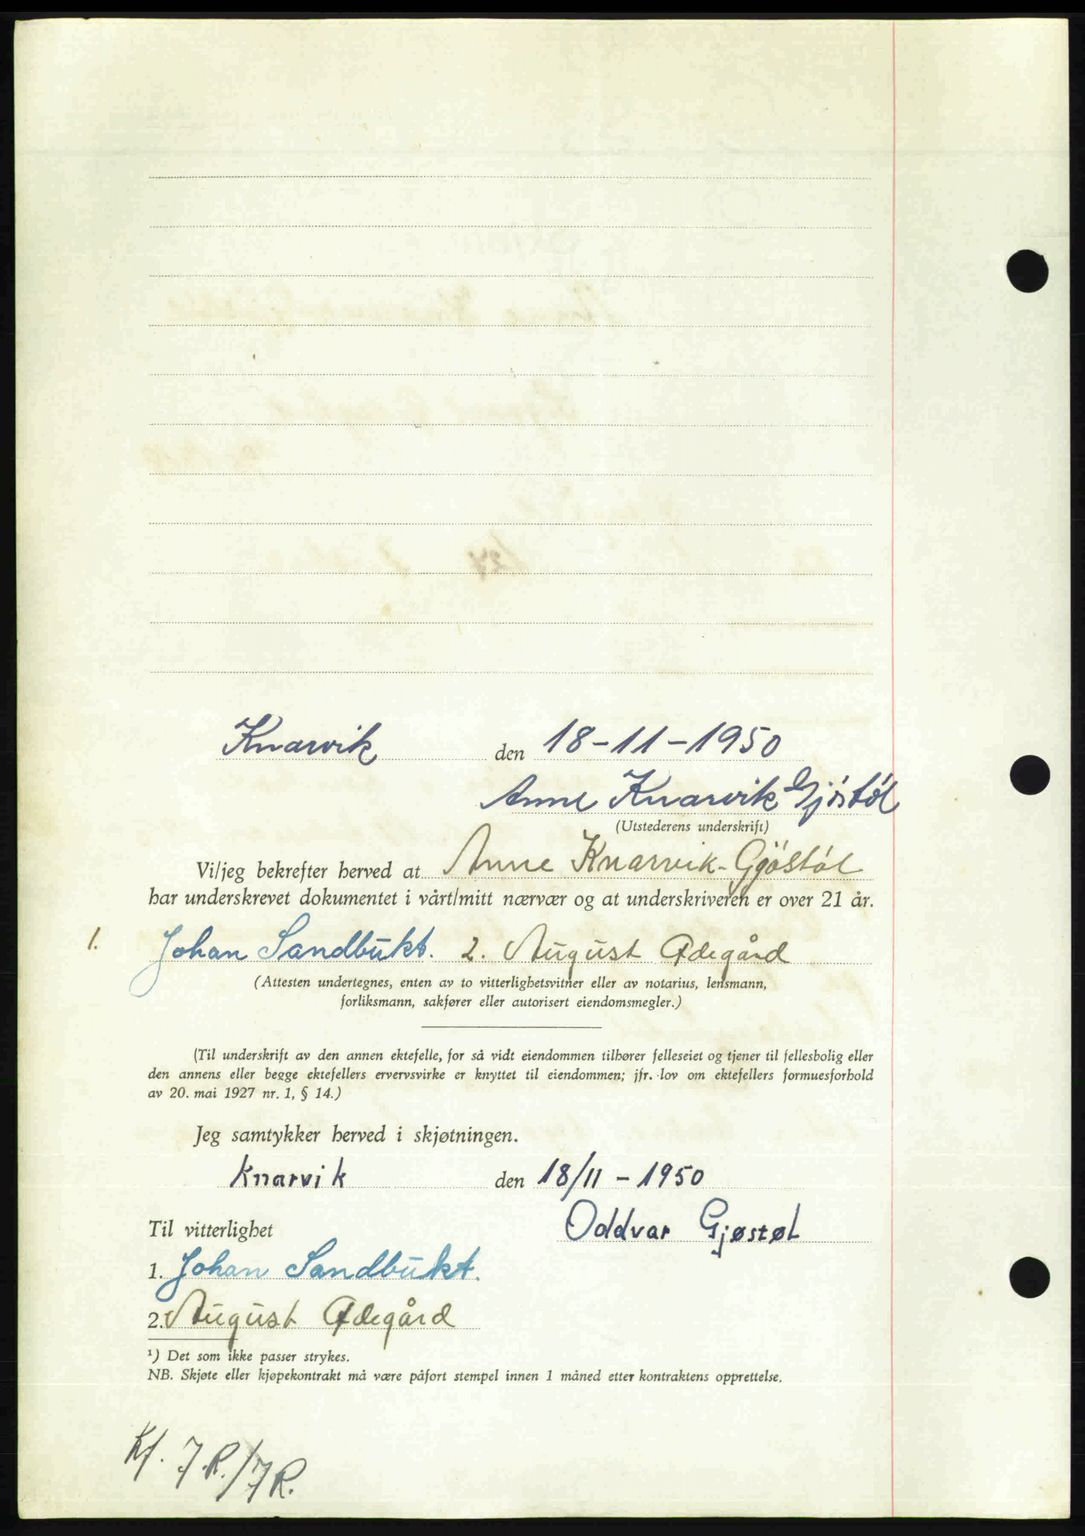 Knarvik den 18-11-1950
Anne Knarvik Gjøstøl
(Utstederens underskrift)
Vi/jeg bekrefter herved at Anne Knarvik-Gjøstøl
har underskrevet dokumentet i vårt/mitt nærvær og at underskriveren er over 21 år.
1. Johan Sandbukt. 2. August Ødegård
(Attesten undertegnes, enten av to vitterlighetsvitner eller av notarius, lensmann,
forliksmann, sakfører eller autorisert eiendomsmegler.)
(Til underskrift av den annen ektefelle, for så vidt eiendommen tilhører felleseiet og tjener til fellesbolig eller
den annens eller begge ektefellers ervervsvirke er knyttet til eiendommen; jfr. lov om ektefellers formuesforhold
av 20. mai 1927 nr. 1, § 14.)
Jeg samtykker herved i skjøtningen.
Knarvik den 18/11-1950
Til vitterlighet Oddvar Gjøstøl
1. Johan Sandbukt.
2. August Ødegård
¹) Det som ikke passer strykes.
NB. Skjøte eller kjøpekontrakt må være påført stempel innen 1 måned etter kontraktens opprettelse.